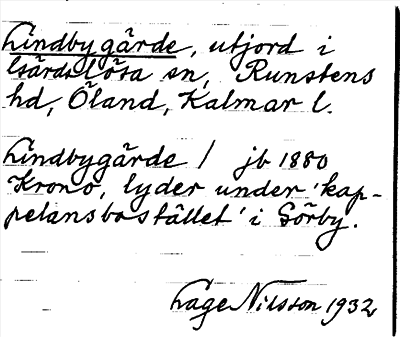 Lindbygärde, utjord i
Gärdslösa sn, Runstens
hd, Öland, Kalmar l.
Lindbygärde / jb 1880
Krono, lyder under 'kap-
pelansbostället' i Sörby.
Lage Nilsson 1932